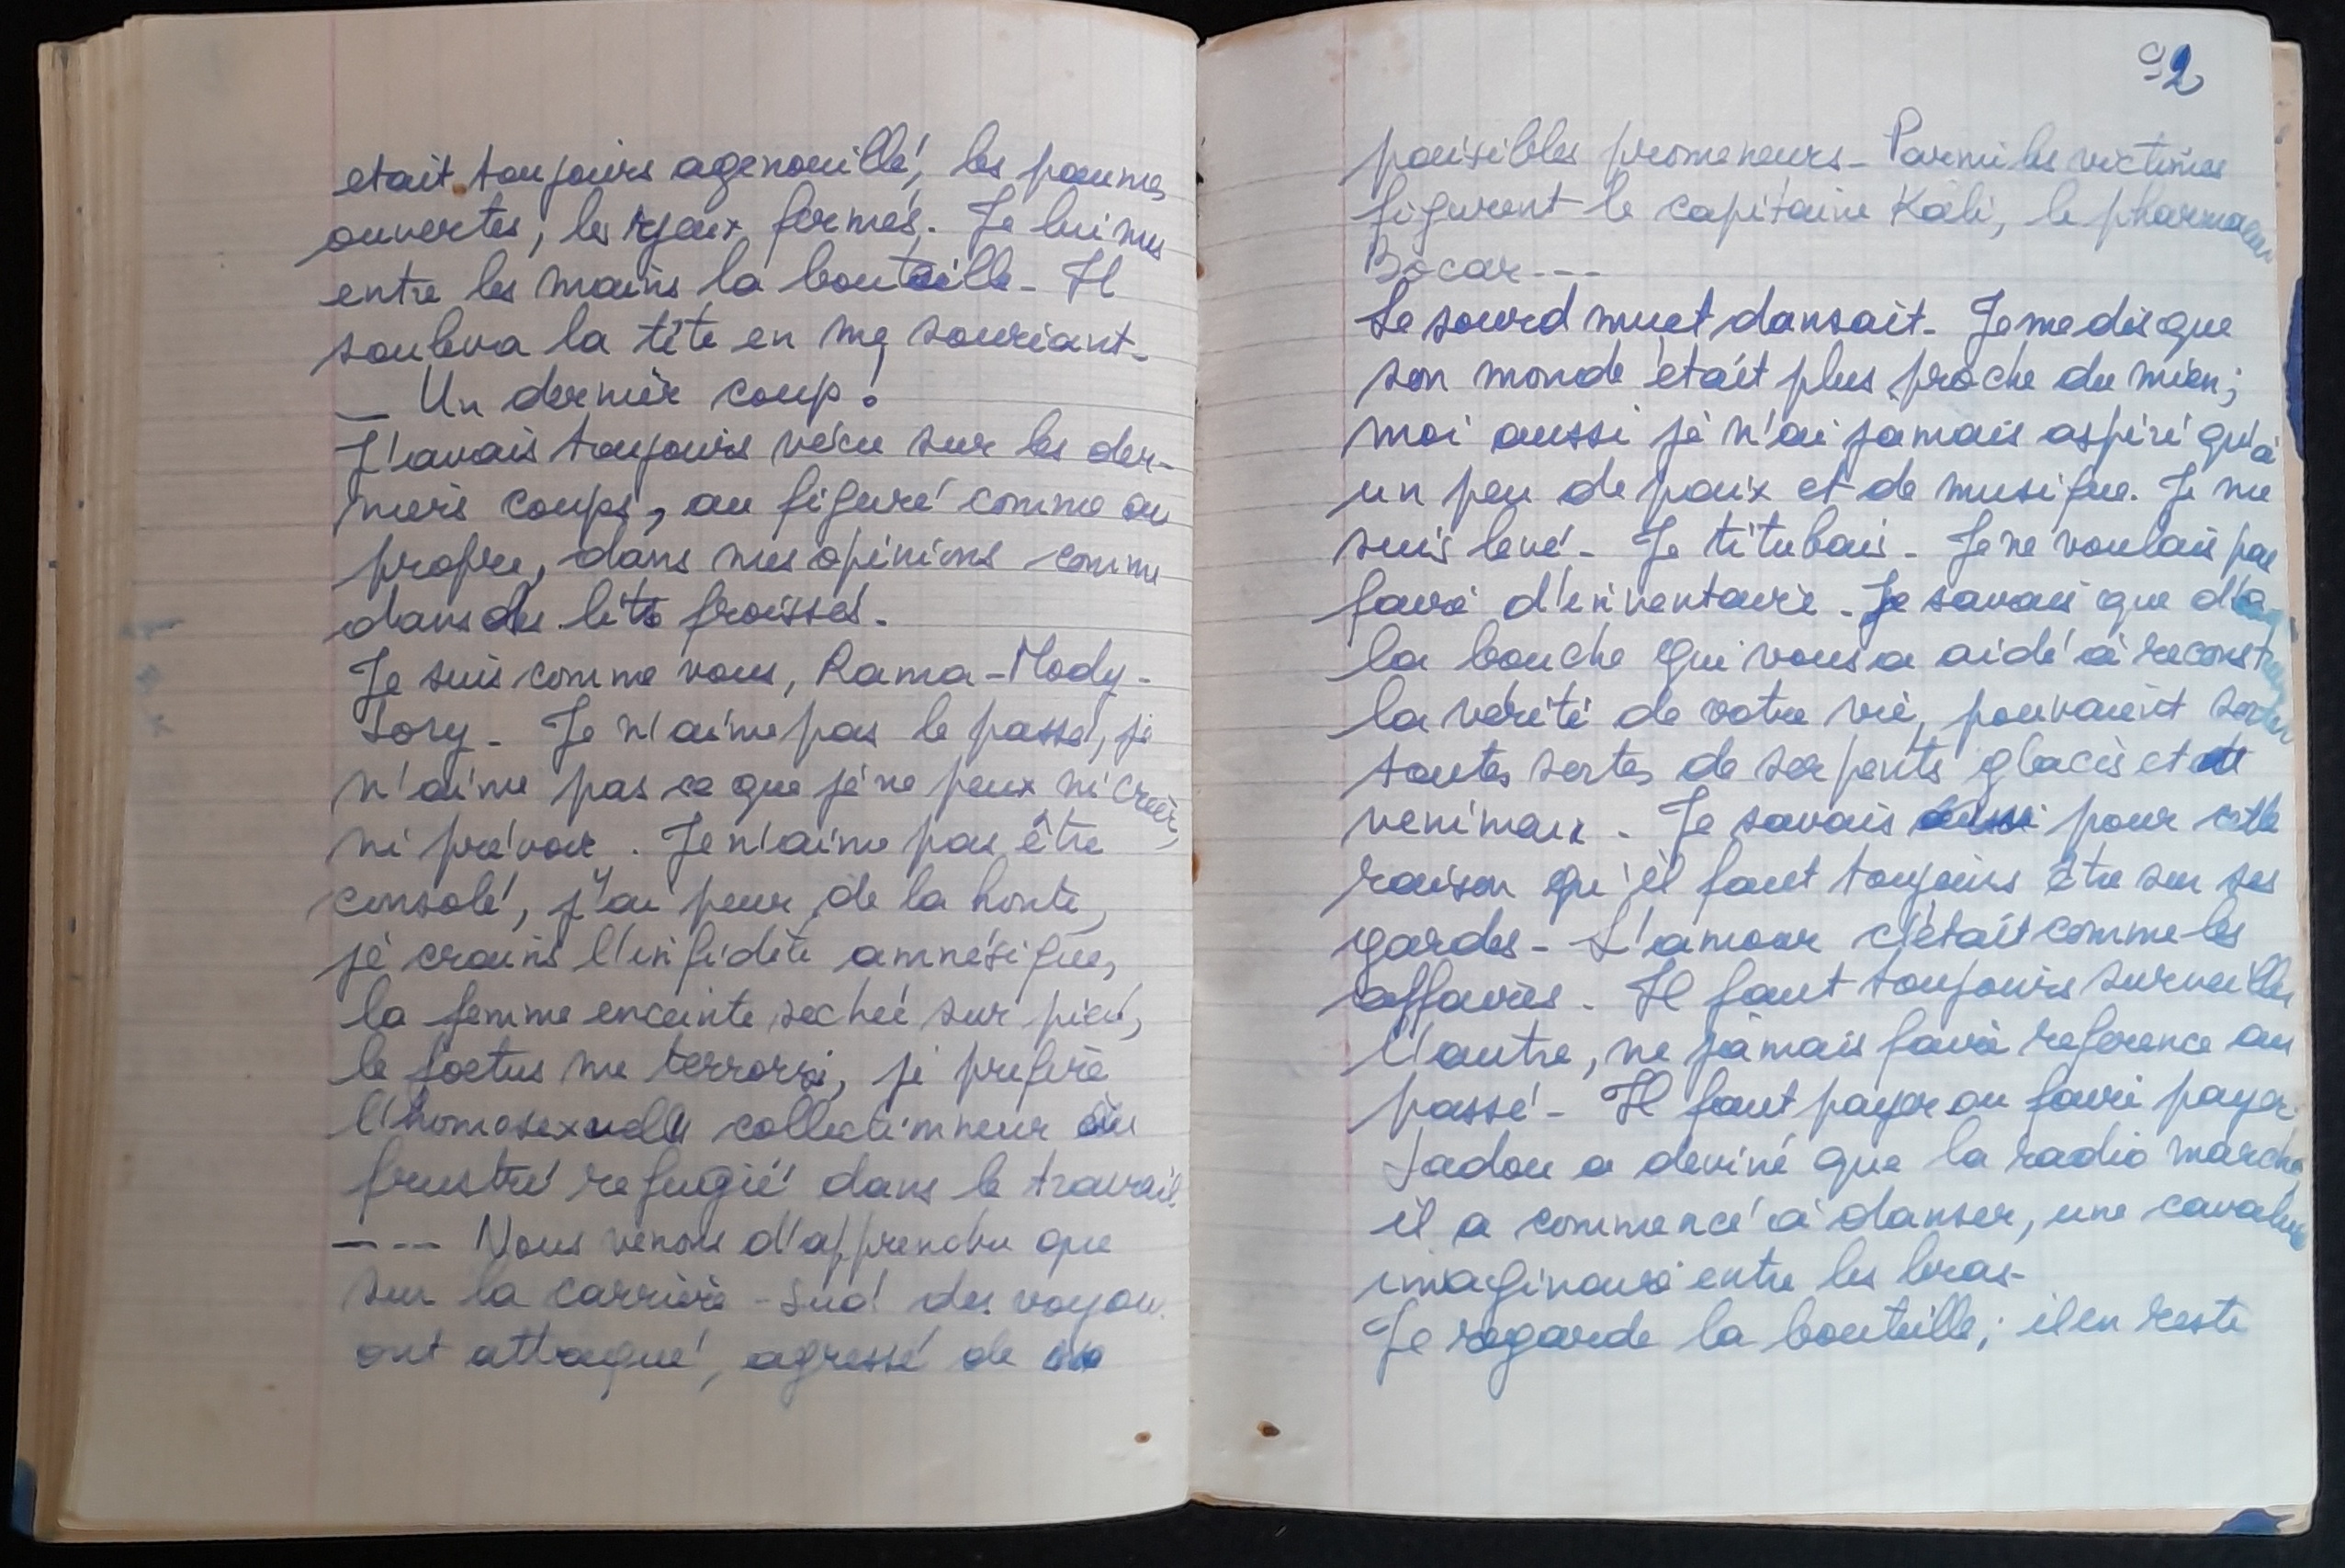 etait toujours agenouillé, les paumes
ouvertes, les yeux fermés. Je lui mis
entre les mains la bouteille - Il
souleva la tête en me souriant -
_ Un dernier coup !
J'avais toujours vécu sur les der-
niers coups, au figuré comme au
propre, dans mes opinions comme
dans des lits froissés.
Je suis comme vous, Rama - Mody -
Sory - Je n'aime pas le passé, je
n'aime pas ce que je ne peux ni créer,
ni prévoir. Je n'aime pas être
consolé, j'ai peur de la honte,
je crains l'infidité amnésique,
la femme enceinte sechée sur pied,
le foetus me terrorise, je prefère
l'homosexuelle collectionneur ou
frustré refugié dans le travail
--- Nous venons d'apprendre que
sur la carrière - Sud des voyous
ont attaqué, agressé de
92
paisibles promeneurs - Parmi les victimes
figurent le capitaine Kali, le pharmacien
Bocar ---
Le sourd muet dansait - Je me dis que
son monde était plus proche du mien;
moi aussi je n'ai jamais aspiré qu'à
un peu de paix et de musique. Je me
suis levé - Je titubais - Je ne voulais pas
faire d'inventaire - Je savais que de
la bouche qui vous a aidé à reconstruire
la vérité de votre vie, pouvaient sortir
toutes sortes de serpents glacés et
venimeux - Je savais aussi pour cette
raison qu'il faut toujours être sur ses
gardes - L'amour c'était comme les
affaires - Il faut toujours surveiller
l'autre, ne jamais faire reference au
passé - Il faut payer ou faire payer
Sadou a deviné que la radio marche,
il a commencé à danser, une cavalière
imaginaire entre les bras -
Je regarde la bouteille; il en reste